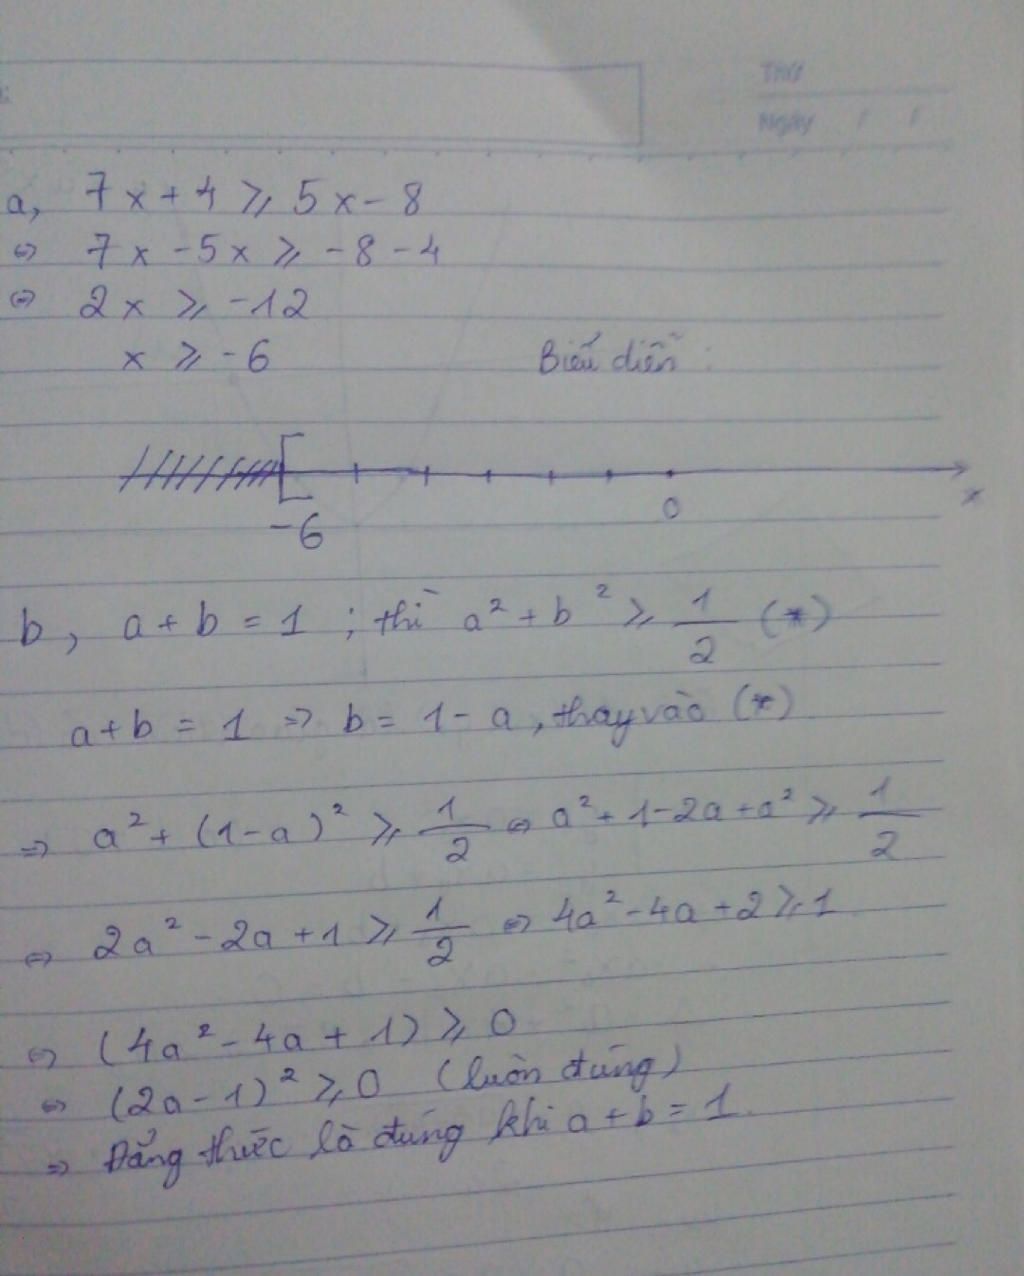 Thứ
Ngày / /
a, 7x + 4 ⩾ 5x - 8
⇔ 7x - 5x ⩾ -8 - 4
⇔ 2x ⩾ -12
x ⩾ -6 Biểu diễn :
-6 0 x
b, a + b = 1 ; thì a² + b² ⩾ 1/2 (*)
a + b = 1 ⇒ b = 1 - a, thay vào (*)
⇒ a² + (1-a)² ⩾ 1/2 ⇔ a² + 1 - 2a + a² ⩾ 1/2
⇔ 2a² - 2a + 1 ⩾ 1/2 ⇔ 4a² - 4a + 2 ⩾ 1
⇔ (4a² - 4a + 1) ⩾ 0
⇔ (2a - 1)² ⩾ 0 (luôn đúng)
⇒ Đẳng thức là đúng khi a + b = 1.